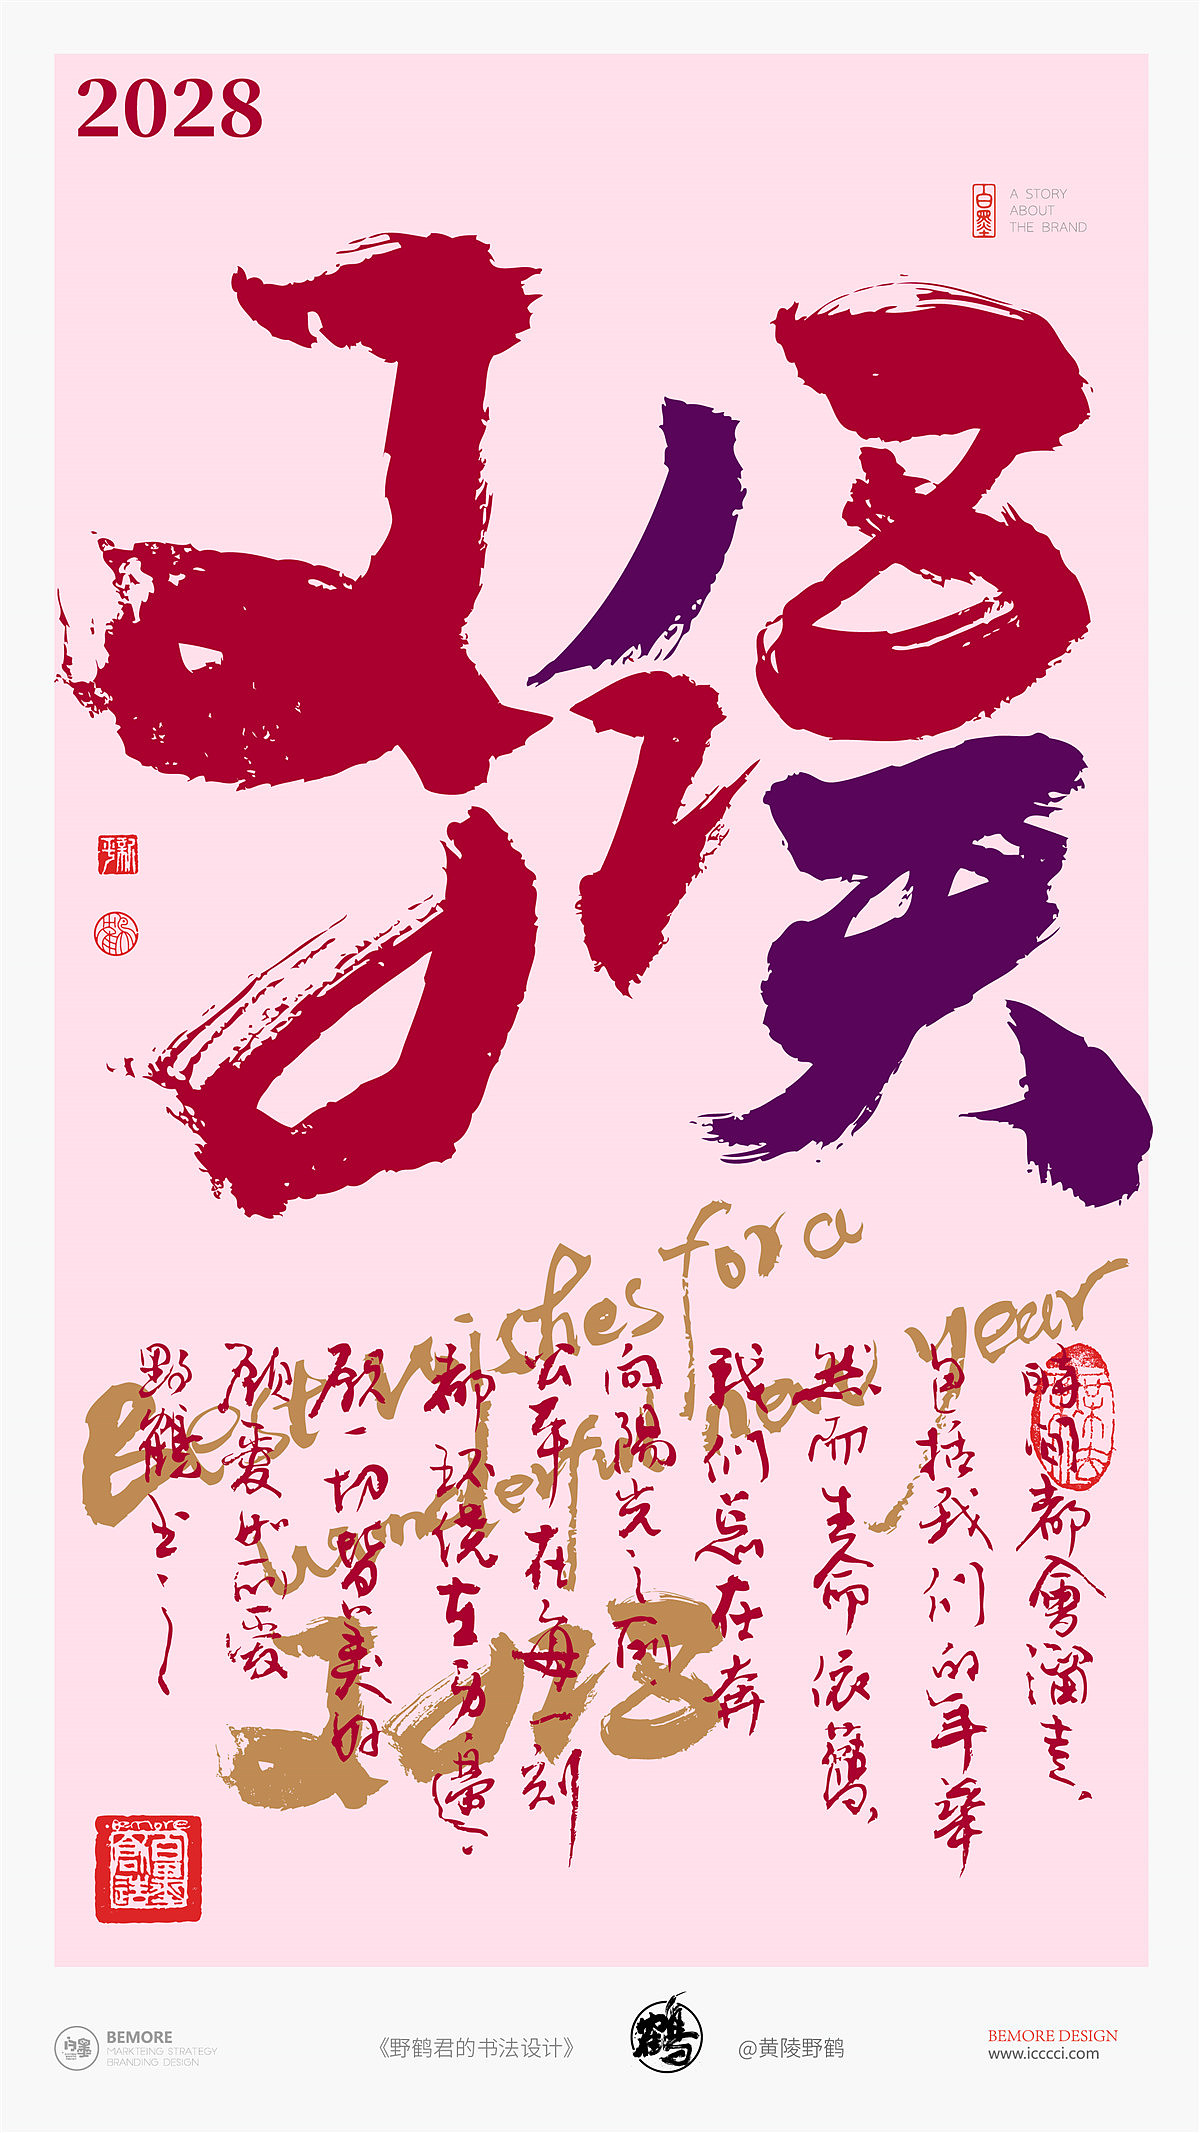 2028
百墨
A STORY
ABOUT
THE BRAND
Best wishes for a
wonderful new year
2018
时间都會溜走、
包括我们的年華
然而生命依舊、
我们总在奔
向陽光之前
公平在每一刻
都环绕在身邊.
愿一切皆美好
願愛如所愛
野鶴书
Bemore
BEMORE
MARKTEING STRATEGY
BRANDING DESIGN
《野鹤君的书法设计》
鶴
@黄陵野鹤
BEMORE DESIGN
www.icccci.com